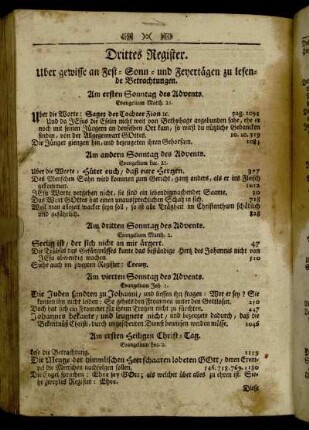 Drittes Register.
Uber gewisse an Fest- Sonn- und Feyertägen zu lesen-
de Betrachtungen.
Am ersten Sonntag des Advents.
Evangelium Matth. 21.
Uber die Worte: Saget der Tochter Sion ic. pag. 1095
Und da JEsus die Eselin nicht weit von Bethphage angebunden sahe, ehe er
noch mit seinen Jüngern an denselben Ort kam, so wirst du taugliche Gedancken
finden, von der Allgegenwart GOttes. 10. 20. 930
Die Jünger giengen hin, und bezeugeten ihren Gehorsam. 1083
Am andern Sonntag des Advents.
Evangelium Luc. 21.
Uber die Worte: Hütet euch, daß eure Hertzen. 327
Des Menschen Sohn wird kommen zum Gericht, gantz anders, als er ins Fleisch
gekommen. 1028
JEsu Worte vergehen nicht, sie sind ein lebendigmachender Saame. 30
Das Wort GOttes hat einen unaussprechlichen Schatz in sich. 728
Weil man allezeit wacker seyn soll, so ist alle Trägheit im Christenthum schädlich
und gefährlich. 828
Am dritten Sonntag des Advents.
Evangelium Matth. 2.
Seelig ist, der sich nicht an mir ärgert. 47
Die Trübsal des Gefängnisses kunte das beständige Hertz des Johannis nicht von
JEsu abwendig machen. 130
Siehe auch im zweyten Register: Creutz.
Am vierten Sonntag des Advents.
Evangelium Joh. 1.
Die Juden sendten zu Johanni, und liessen ihn fragen: Wer er sey? Sie
kannten ihn nicht 210
Doch hat sich an Frommer für ihrem Trohen nicht zu fürchten. 447
Johannes bekante, und leugnete nicht, und bezeuget dadurch, daß die
Bekäntniß Christi, durch anzusehenden Dienst bewiesen werden müsse. 1046
Am ersten Heiligen Christ-Tag.
Evangelium Luc. 2.
Lese die Betrachtung. 1119
Die Menge der himmlischen Heerschaaren lobeten GOtt, deren Exem-
pel die Menschen nachfolgen sollen. 146. 718. 769. 1180
Die Engel sprachen: Ehre sey GOtt; als welcher über alles zu ehren ist. Sie-
he zweytes Register: Ehre.
Diese